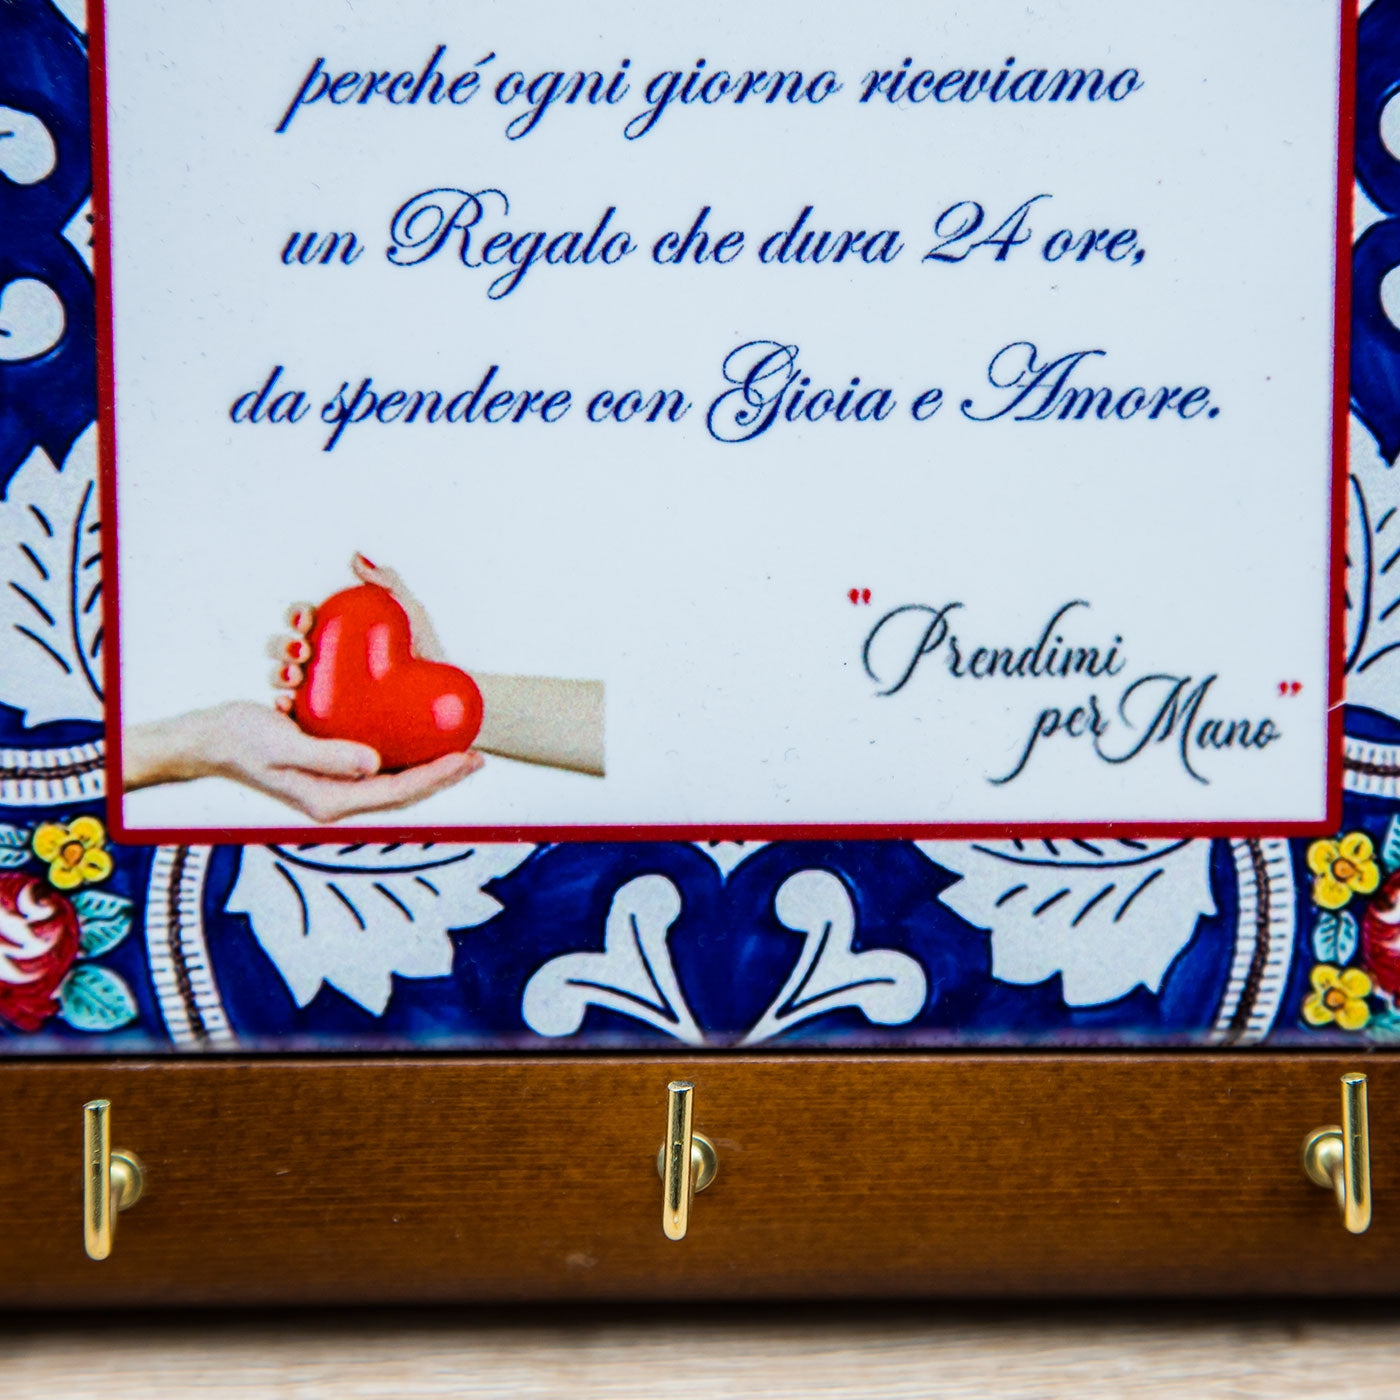 perché ogni giorno riceviamo
un Regalo che dura 24 ore,
da spendere con Gioia e Amore.
"Prendimi
per Mano"